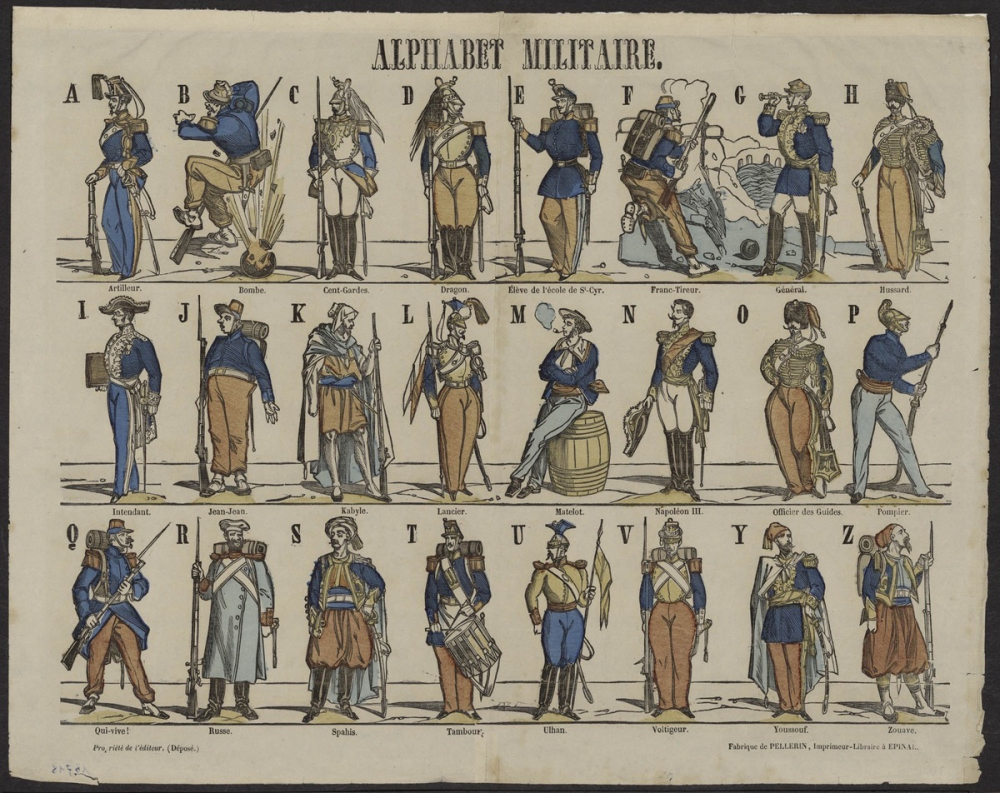 ALPHABET MILITAIRE.
A B C D E F G H
Artilleur. Bombe. Cent-Gardes. Dragon. Élève de l'école de St-Cyr. Franc-Tireur. Général. Hussard.
I J K L M N O P
Intendant. Jean-Jean. Kabyle. Lancier. Matelot. Napoléon III. Officier des Guides. Pompier.
Q R S T U V Y Z
Qui-vive! Russe. Spahis. Tambour. Ulhan. Voltigeur. Youssouf. Zouave.
Pro riété de l'éditeur. (Déposé.) Fabrique de PELLERIN, Imprimeur-Libraire à EPINAL.